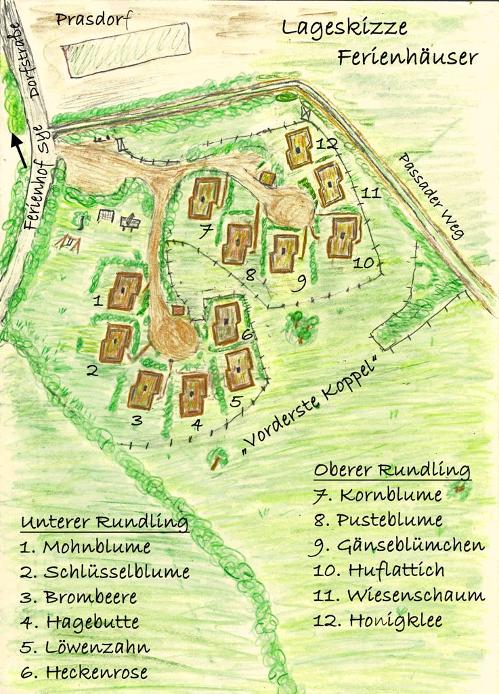 Prasdorf
Lageskizze
Ferienhäuser
Dorfstraße
Ferienhof Sye
Passader Weg
12
11
10
9
8
7
1
2
3
4
5
6
„Vorderste Koppel"
Unterer Rundling
1. Mohnblume
2. Schlüsselblume
3. Brombeere
4. Hagebutte
5. Löwenzahn
6. Heckenrose
Oberer Rundling
7. Kornblume
8. Pusteblume
9. Gänseblümchen
10. Huflattich
11. Wiesenschaum
12. Honigklee